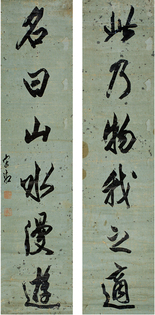 此乃物我之適
名曰山水漫遊